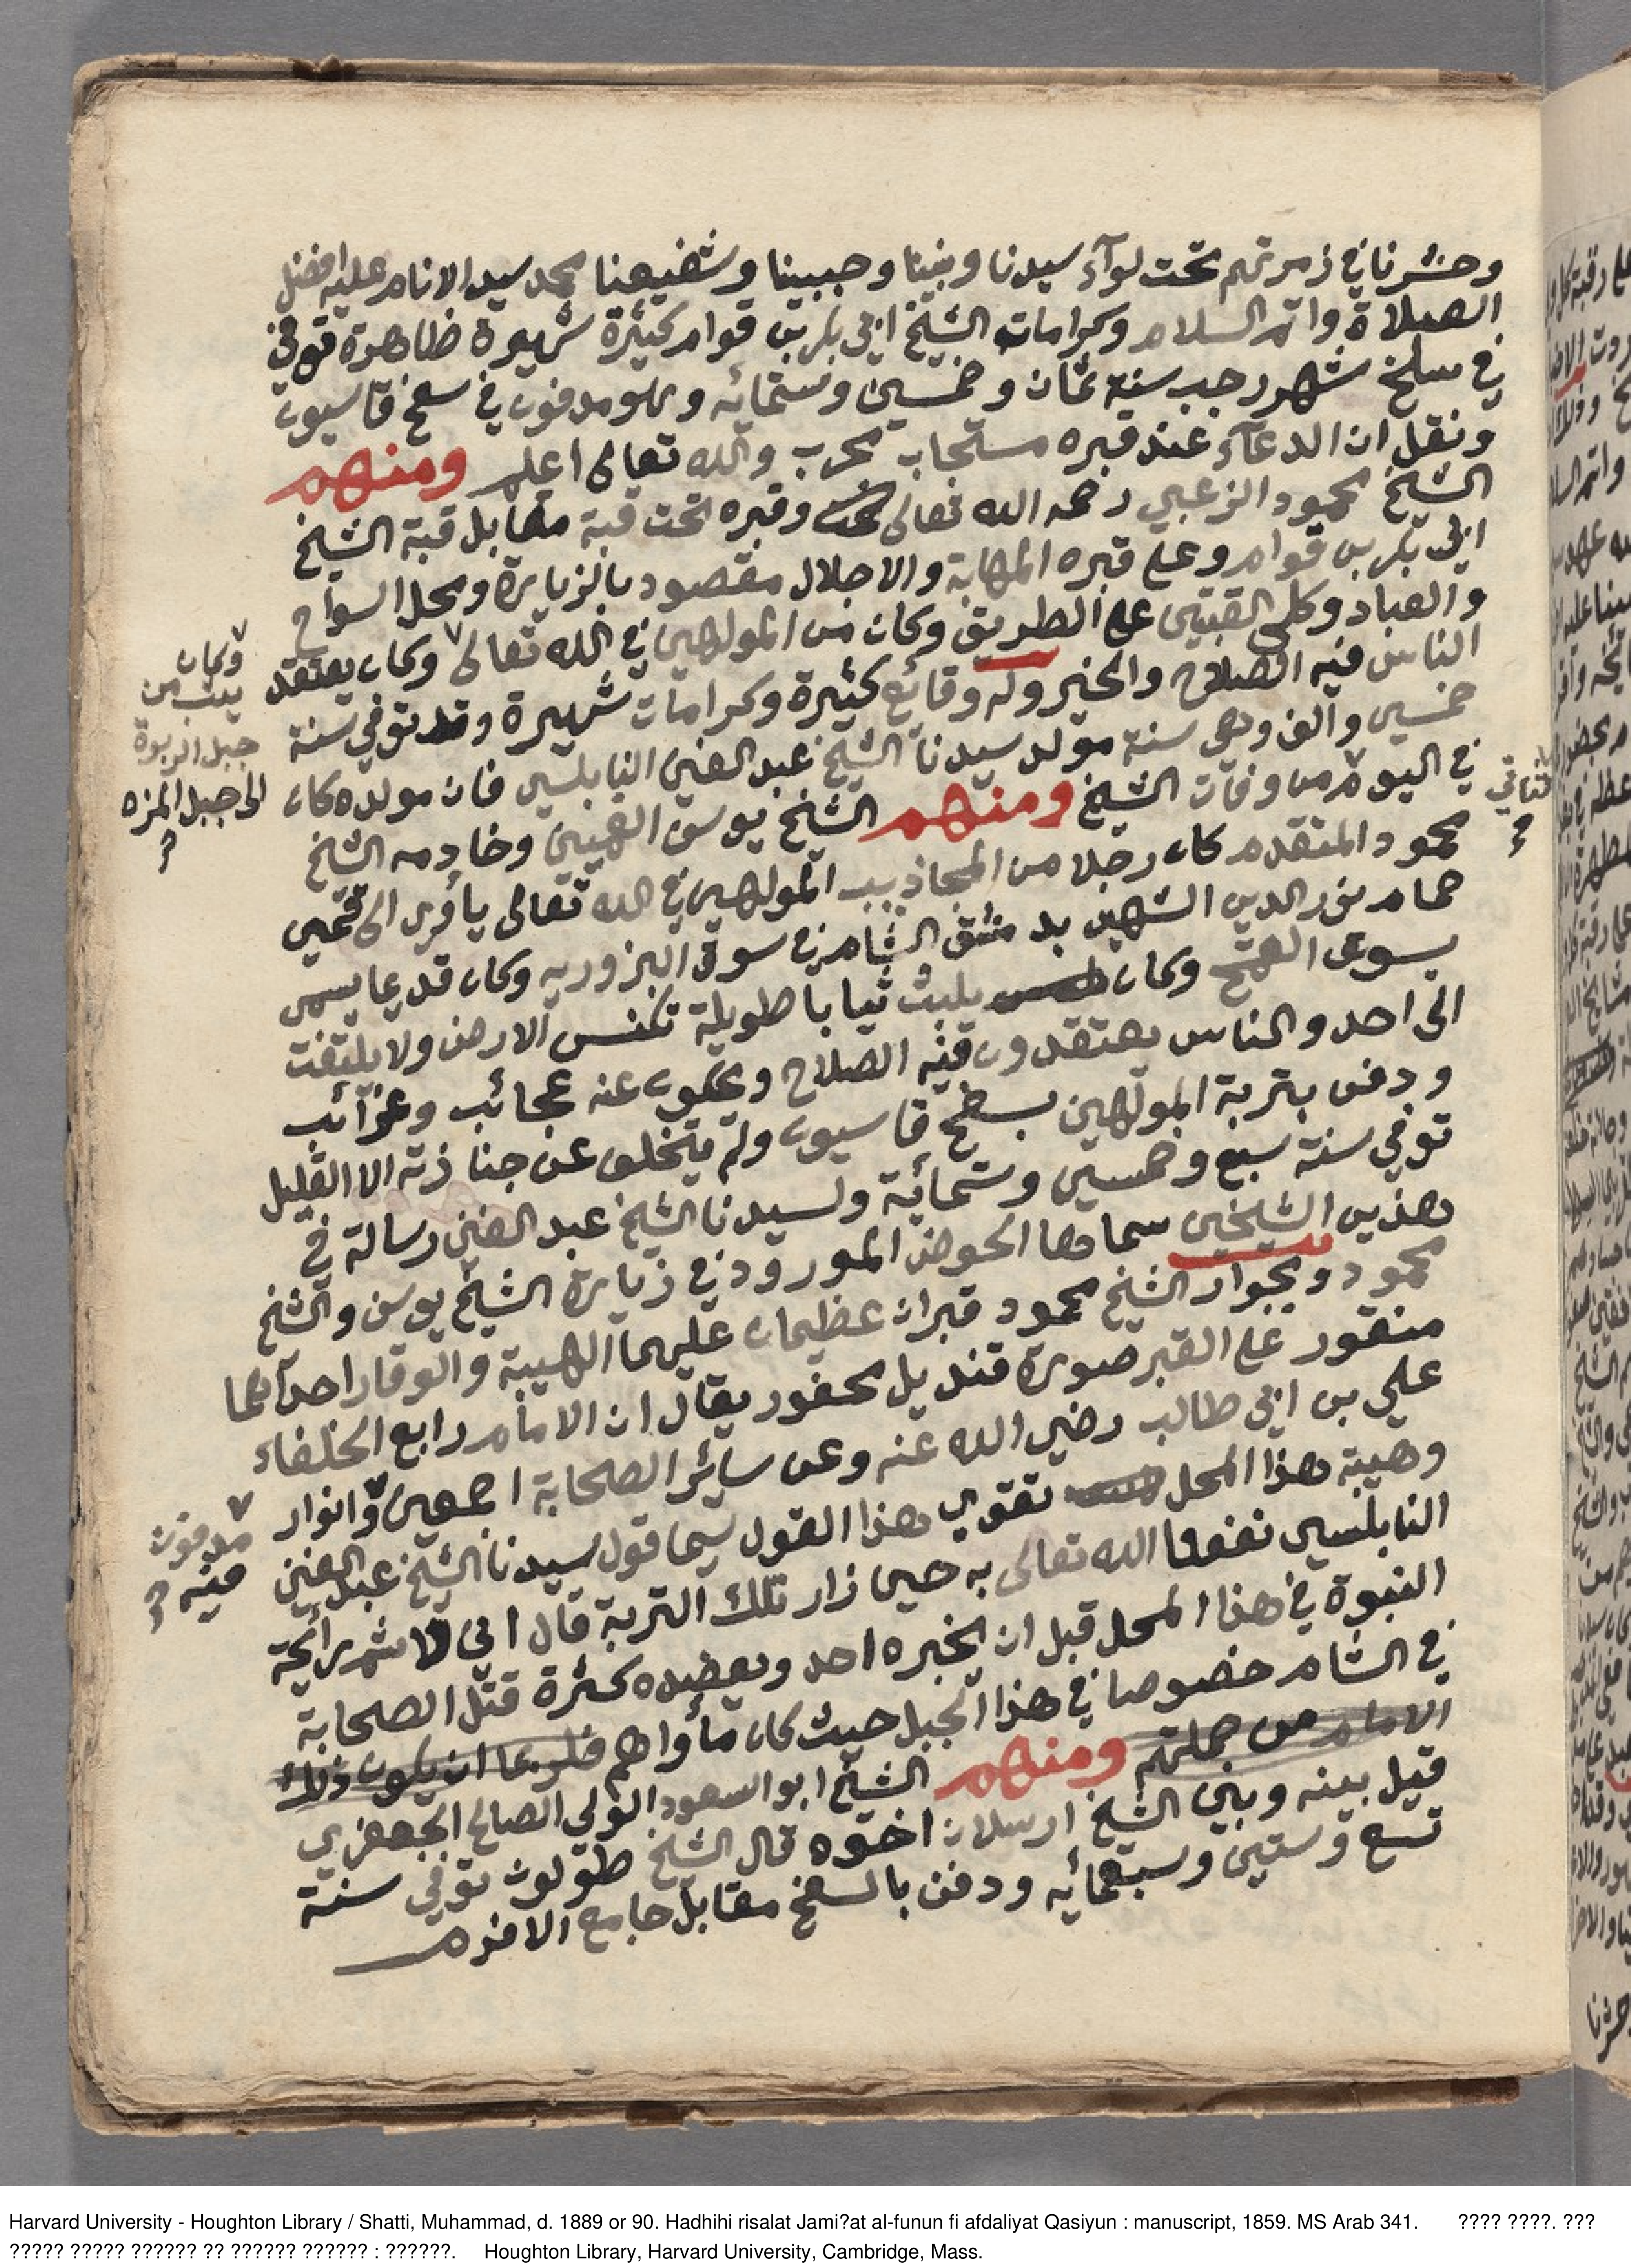 وحشرنا في زمرتهم تحت لوآء سيدنا ونبينا وحبيبنا وشفيعنا محمد سيد الانام عليه افضل
الصلاة واتم السلام وكرامات الشيخ ابي بكر بن قوام كثيرة شهيرة ظاهرة توفي
في سلخ شهر رجب سنة ثمان وخمسين وستمائه وهو مدفون في سفح قاسيون
ونقل ان الدعآء عند قبره مستجاب مجرب والله تعالى اعلم ومنهم
الشيخ محمود الزعبي رحمه الله تعالى وقبره تحت قبة مقابل قبة الشيخ
ابي بكر بن قوام وعلى قبره المهابة والاجلال مقصود بالزيارة ومحل السواح
والعباد وكلى القبتين على الطريق وكان من المولهين في الله تعالى وكان يعتقد
الناس فيه الصلاح والخير وله وقائع كثيرة وكرامات شهيرة وقد توفي سنة
خمسين والف وهي سنة مولد سيدنا الشيخ عبد الغني النابلسي فان مولده كان
في اليوم من وفات الشيخ ومنهم الشيخ يوسف القميني وخادمه الشيخ
محمود المتقدم كان رجلا من المجاذيب المولهين في الله تعالى يأوي الى قمين
حمام نور الدين الشهيد بدمشق الشام في سوق البزوريه وكان قديما يسمى
بسوق القمح وكان يلبث ثيابا طويلة تكنس الارض ولا يلتفت
الى احد والناس يعتقدون فيه الصلاح ويحكون عنه عجائب وغرائب
ودفن بتربة المولهين بسفح قاسيون ولم يتخلف عن جنازته الا القليل
توفي سنة سبع وخمسين وستمائة ولسيدنا الشيخ عبد الغني رسالة في
هذين الشيخين سماها الحوض المورود في زيارة الشيخ يوسف والشيخ
محمود وبجوار الشيخ محمود قبران عظيمان عليهما الهيبة والوقار احداهما
منقور على القبر صورة قنديل محفور يقال ان الامام رابع الخلفاء
علي بن ابي طالب رضي الله عنه وعن سائر الصحابة اجمعين وانوار
وهيبة هذا المحل تقوي هذا القول سيما قول سيدنا الشيخ عبد الغني
النابلسي نفعنا الله تعالى به حين زار تلك التربة قال اني اشم رائحة
النبوة في هذا المحل قبل ان يخبره احد ويعضده كثرة قتل الصحابة
في الشام خصوصا في هذا الجبل حيث كان مأواهم فلربما ان يكون ذلك
الامام من جملتهم ومنهم الشيخ ابو السعود الولي الصالح الجعفري
قيل بينه وبين الشيخ ارسلان اخوه قال الشيخ طولون توفي سنة
تسع وستين وسبعمائه ودفن بالسفح مقابل جامع الافرم
وكان
يبث من
جبل الربوة
الى جبل المزه
الثاني
مدفون
فيه